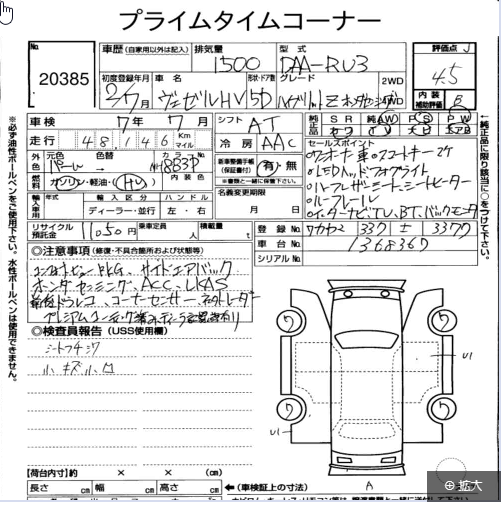 プライムタイムコーナー
No.
20385
車歴 (自家用以外は記入)
排気量
1500
型式
DAA-RU3
評価点
4.5
初度登録年月
車名
形状・ドア数
グレード
2WD
4WD
ヴェゼルHV
5D
ハイブリッドZ ホンダセンシング
内装
補助評価
B
車検
7年7月
走行
48,146
Km
マイル
シフト
AT
冷房
AAC
純正品
SR
AW
PS
PW
カワ
TV
ナビ
エアB
外色
元色
パール
色替
→
カラーNo.
NH883P
燃料
ガソリン・軽油・(HV)
内装色
新車整備手帳
(保証書付)
有・無
※書類と一緒に保管。
名義変更期限
月 日
セールスポイント
○ワンオーナー車 ○スマートキー2ケ
○LEDヘッドフォグライト
○ハーフレザーシート、シートヒーター
○ルーフレール
○インターナビTV、BT、バックモニター
輸入車用
年式
輸入区分
ディーラー・並行
ハンドル
左・右
リサイクル
預託金
11050 円
乗車定員
人
積載量
t
登録No.
337
3377
車台No.
1368367
シリアルNo.
◎注意事項 (修復・不具合箇所および状態等)
サイドエアバッグ
ホンダセンシング、ACC、LKAS
ドラレコ、コーナーセンサー、
◎検査員報告 (USS使用欄)
小キズ小凹
U1
U1
A
【荷台内寸】約 × × (cm)
長さ cm 幅 cm 高さ cm
←(車検証上の寸法)
※必ず油性ボールペンをご使用下さい。水性ボールペンは使用できません。
←純正品に限り該当に○をつけて下さい。
拡大